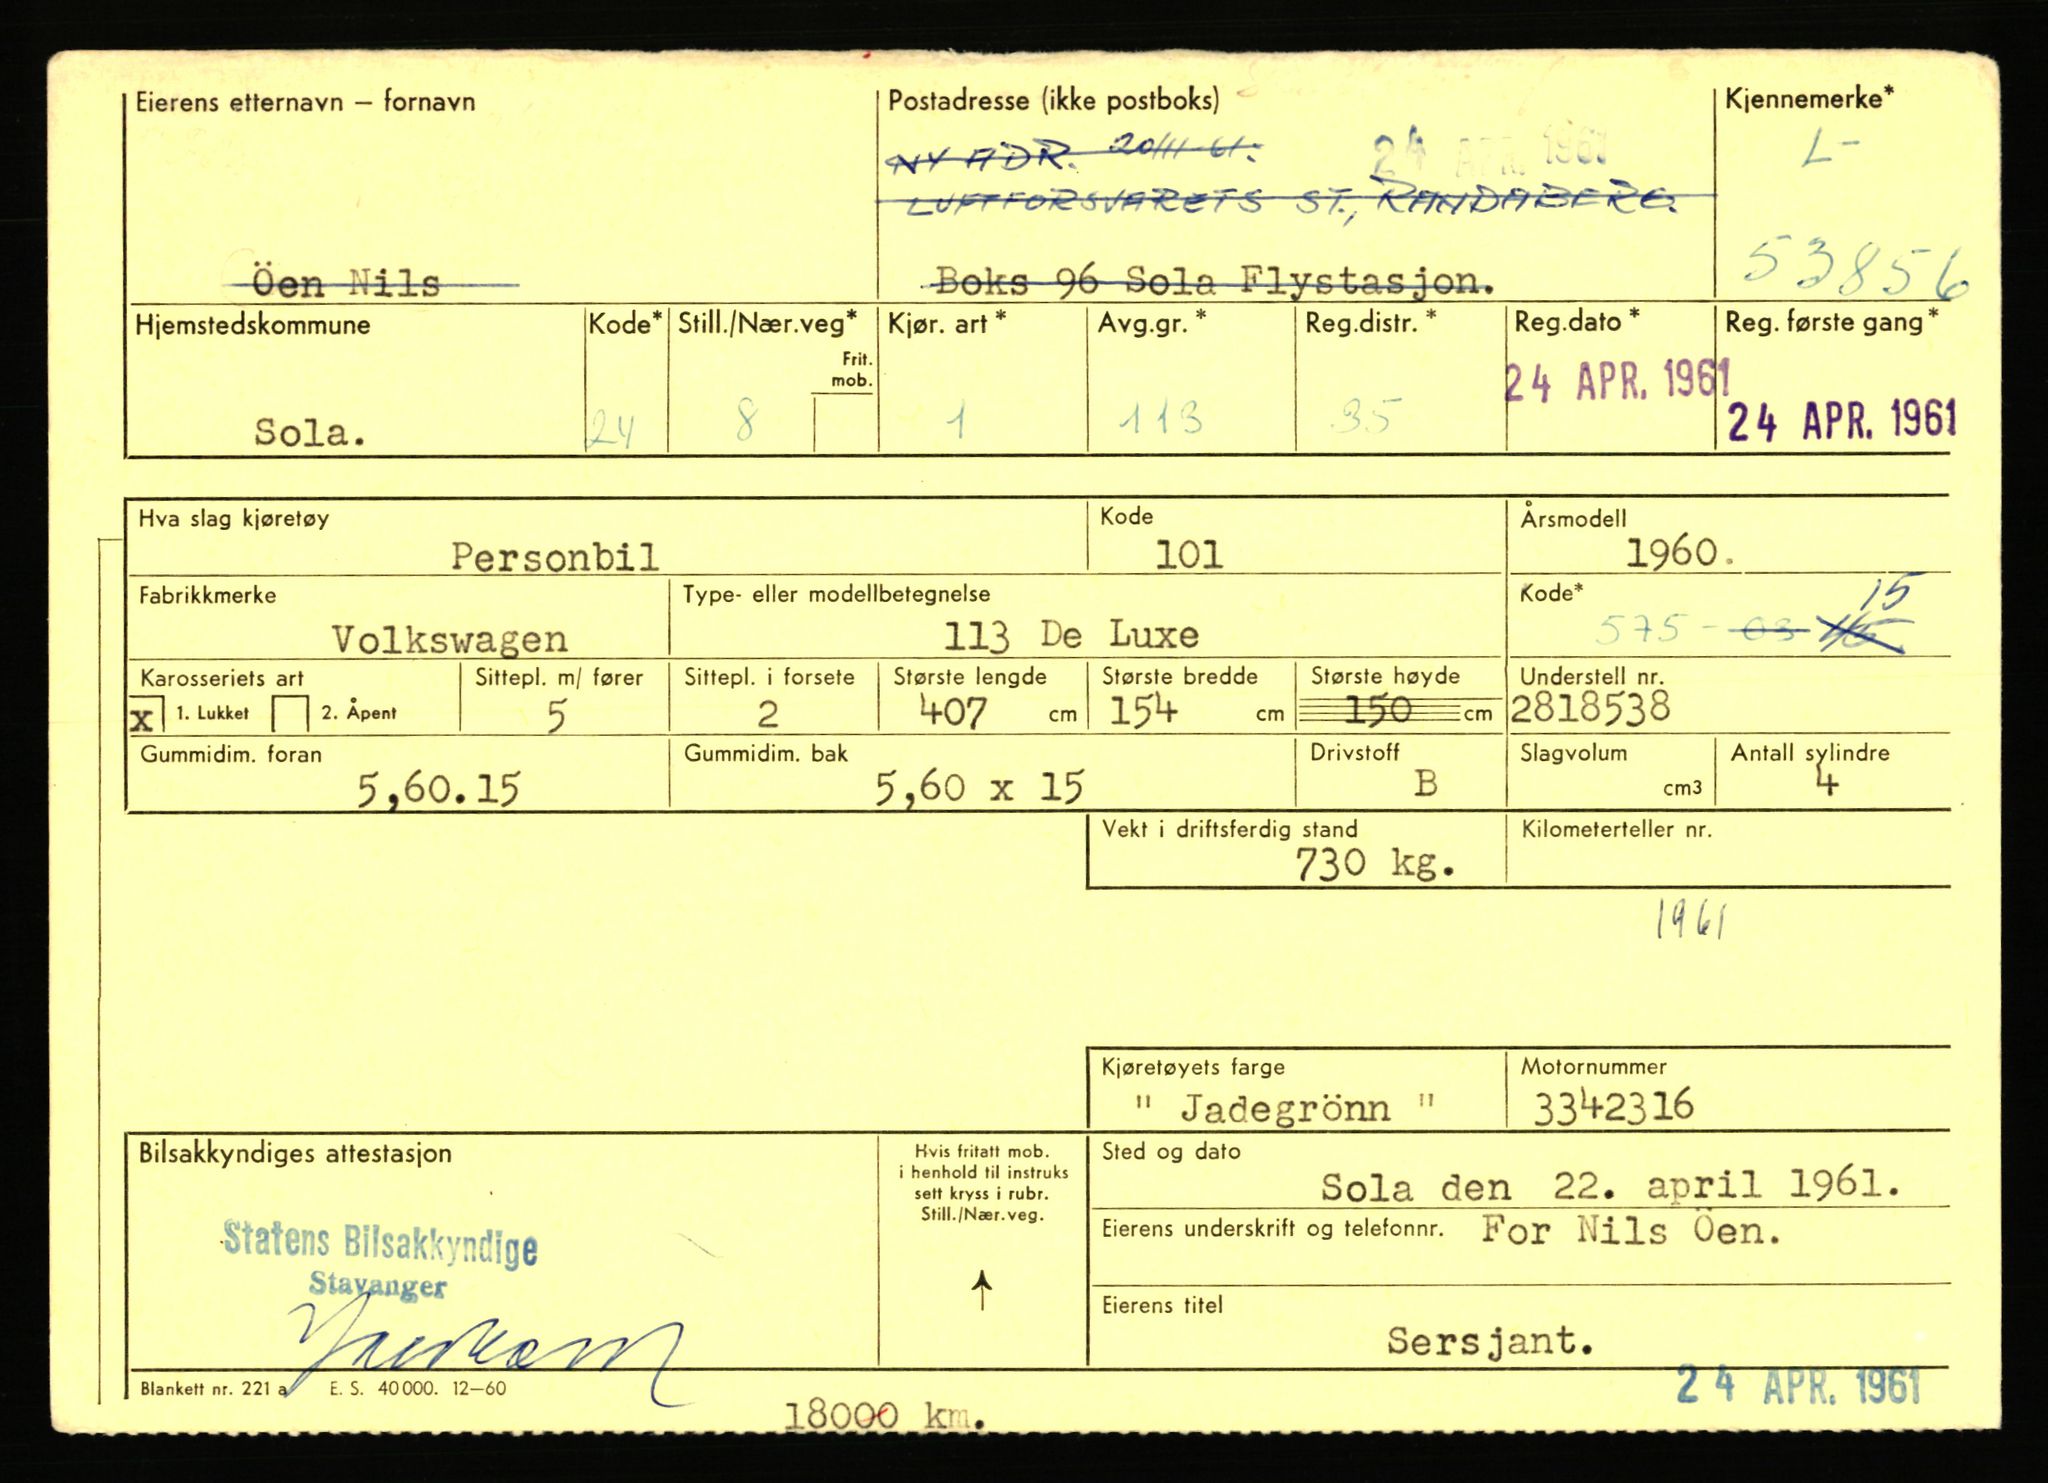 Eierens etternavn – fornavn
Postadresse (ikke postboks)
Kjennemerke*
NY ADR. 20/11-61.
24 APR. 1961
L-
LUFTFORSVARETS ST., RANDABERG.
53856
Öen Nils
Boks 96 Sola Flystasjon.
Hjemstedskommune
Kode*
Still./Nær.veg*
Kjør. art*
Avg.gr.*
Reg.distr.*
Reg.dato*
Reg. første gang*
Frit.
mob.
Sola.
24
8
1
113
35
24 APR. 1961
24 APR. 1961
Hva slag kjøretøy
Personbil
Kode
101
Årsmodell
1960.
Fabrikkmerke
Volkswagen
Type- eller modellbetegnelse
113 De Luxe
Kode*
15
575 - 03
Karosseriets art
x 1. Lukket 2. Åpent
Sittepl. m/ fører
5
Sittepl. i forsete
2
Største lengde
407 cm
Største bredde
154 cm
Største høyde
150 cm
Understell nr.
2818538
Gummidim. foran
5,60.15
Gummidim. bak
5,60 x 15
Drivstoff
B
Slagvolum
cm3
Antall sylindre
4
Vekt i driftsferdig stand
730 kg.
Kilometerteller nr.
1961
Kjøretøyets farge
" Jadegrönn "
Motornummer
3342316
Bilsakkyndiges attestasjon
Statens Bilsakkyndige
Stavanger
Hvis fritatt mob.
i henhold til instruks
sett kryss i rubr.
Still./Nær.veg.
Sted og dato
Sola den 22. april 1961.
Eierens underskrift og telefonnr. For Nils Öen.
Eierens titel
Sersjant.
Blankett nr. 221 a E. S. 40000. 12–60
24 APR. 1961
18000 km.